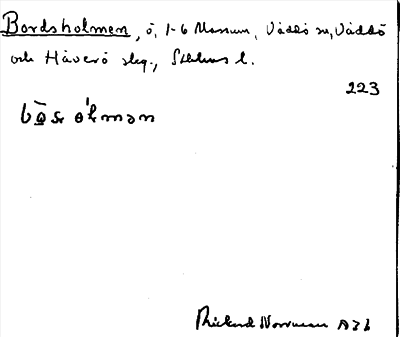 Bordsholmen, ö, 1-6 Massum, Väddö sn, Väddö
och Häverö skg., Sthlms l.
223
bo̲s̲ɐ ólmən
Rickard Norrman 1936